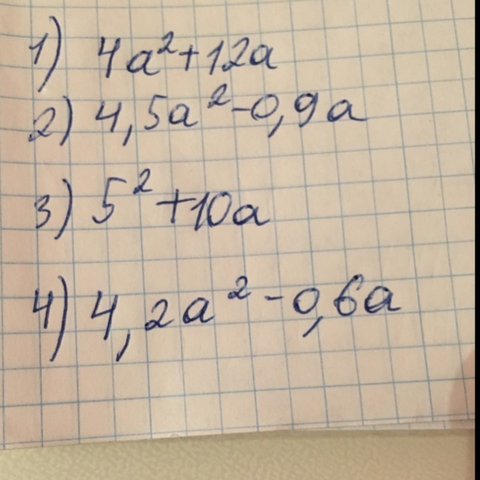 1) 4a²+12a
2) 4,5a²-0,9a
3) 5²+10a
4) 4,2a²-0,6a